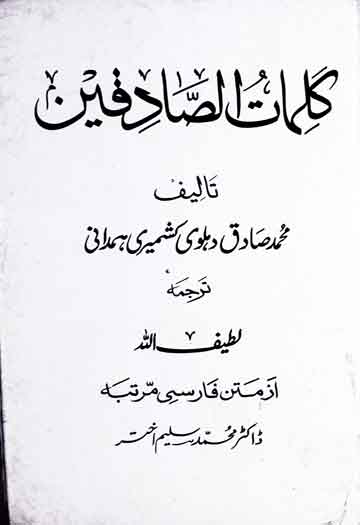 کلمات الصادقین
تالیف
محمد صادق دہلوی کشمیری ہمدانی
ترجمہ
لطیف اللہ
از متن فارسی مرتبہ
ڈاکٹر محمد سلیم اختر